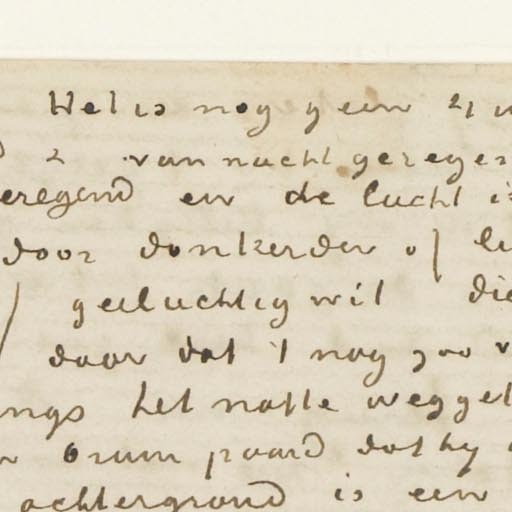 Het is nog geen
van nacht gerege
eregend en de lucht i
door donkerder of l
geeluchtig wil die
daar dat 't nog zoo v
ngs het natte wegge
bruin paard dat hy
achtergrond is een